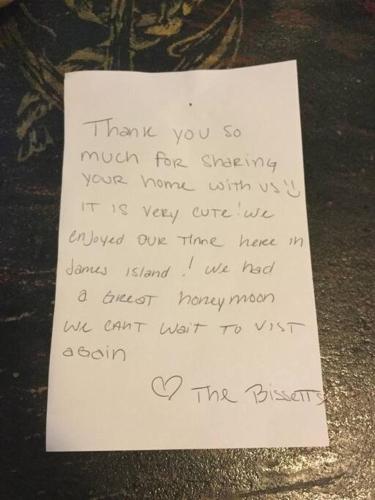 Thank you so
much for sharing
your home with us
it is very cute! we
enjoyed our time here in
James island! we had
a great honeymoon
we cant wait to vist
again
♡ The Bissetts